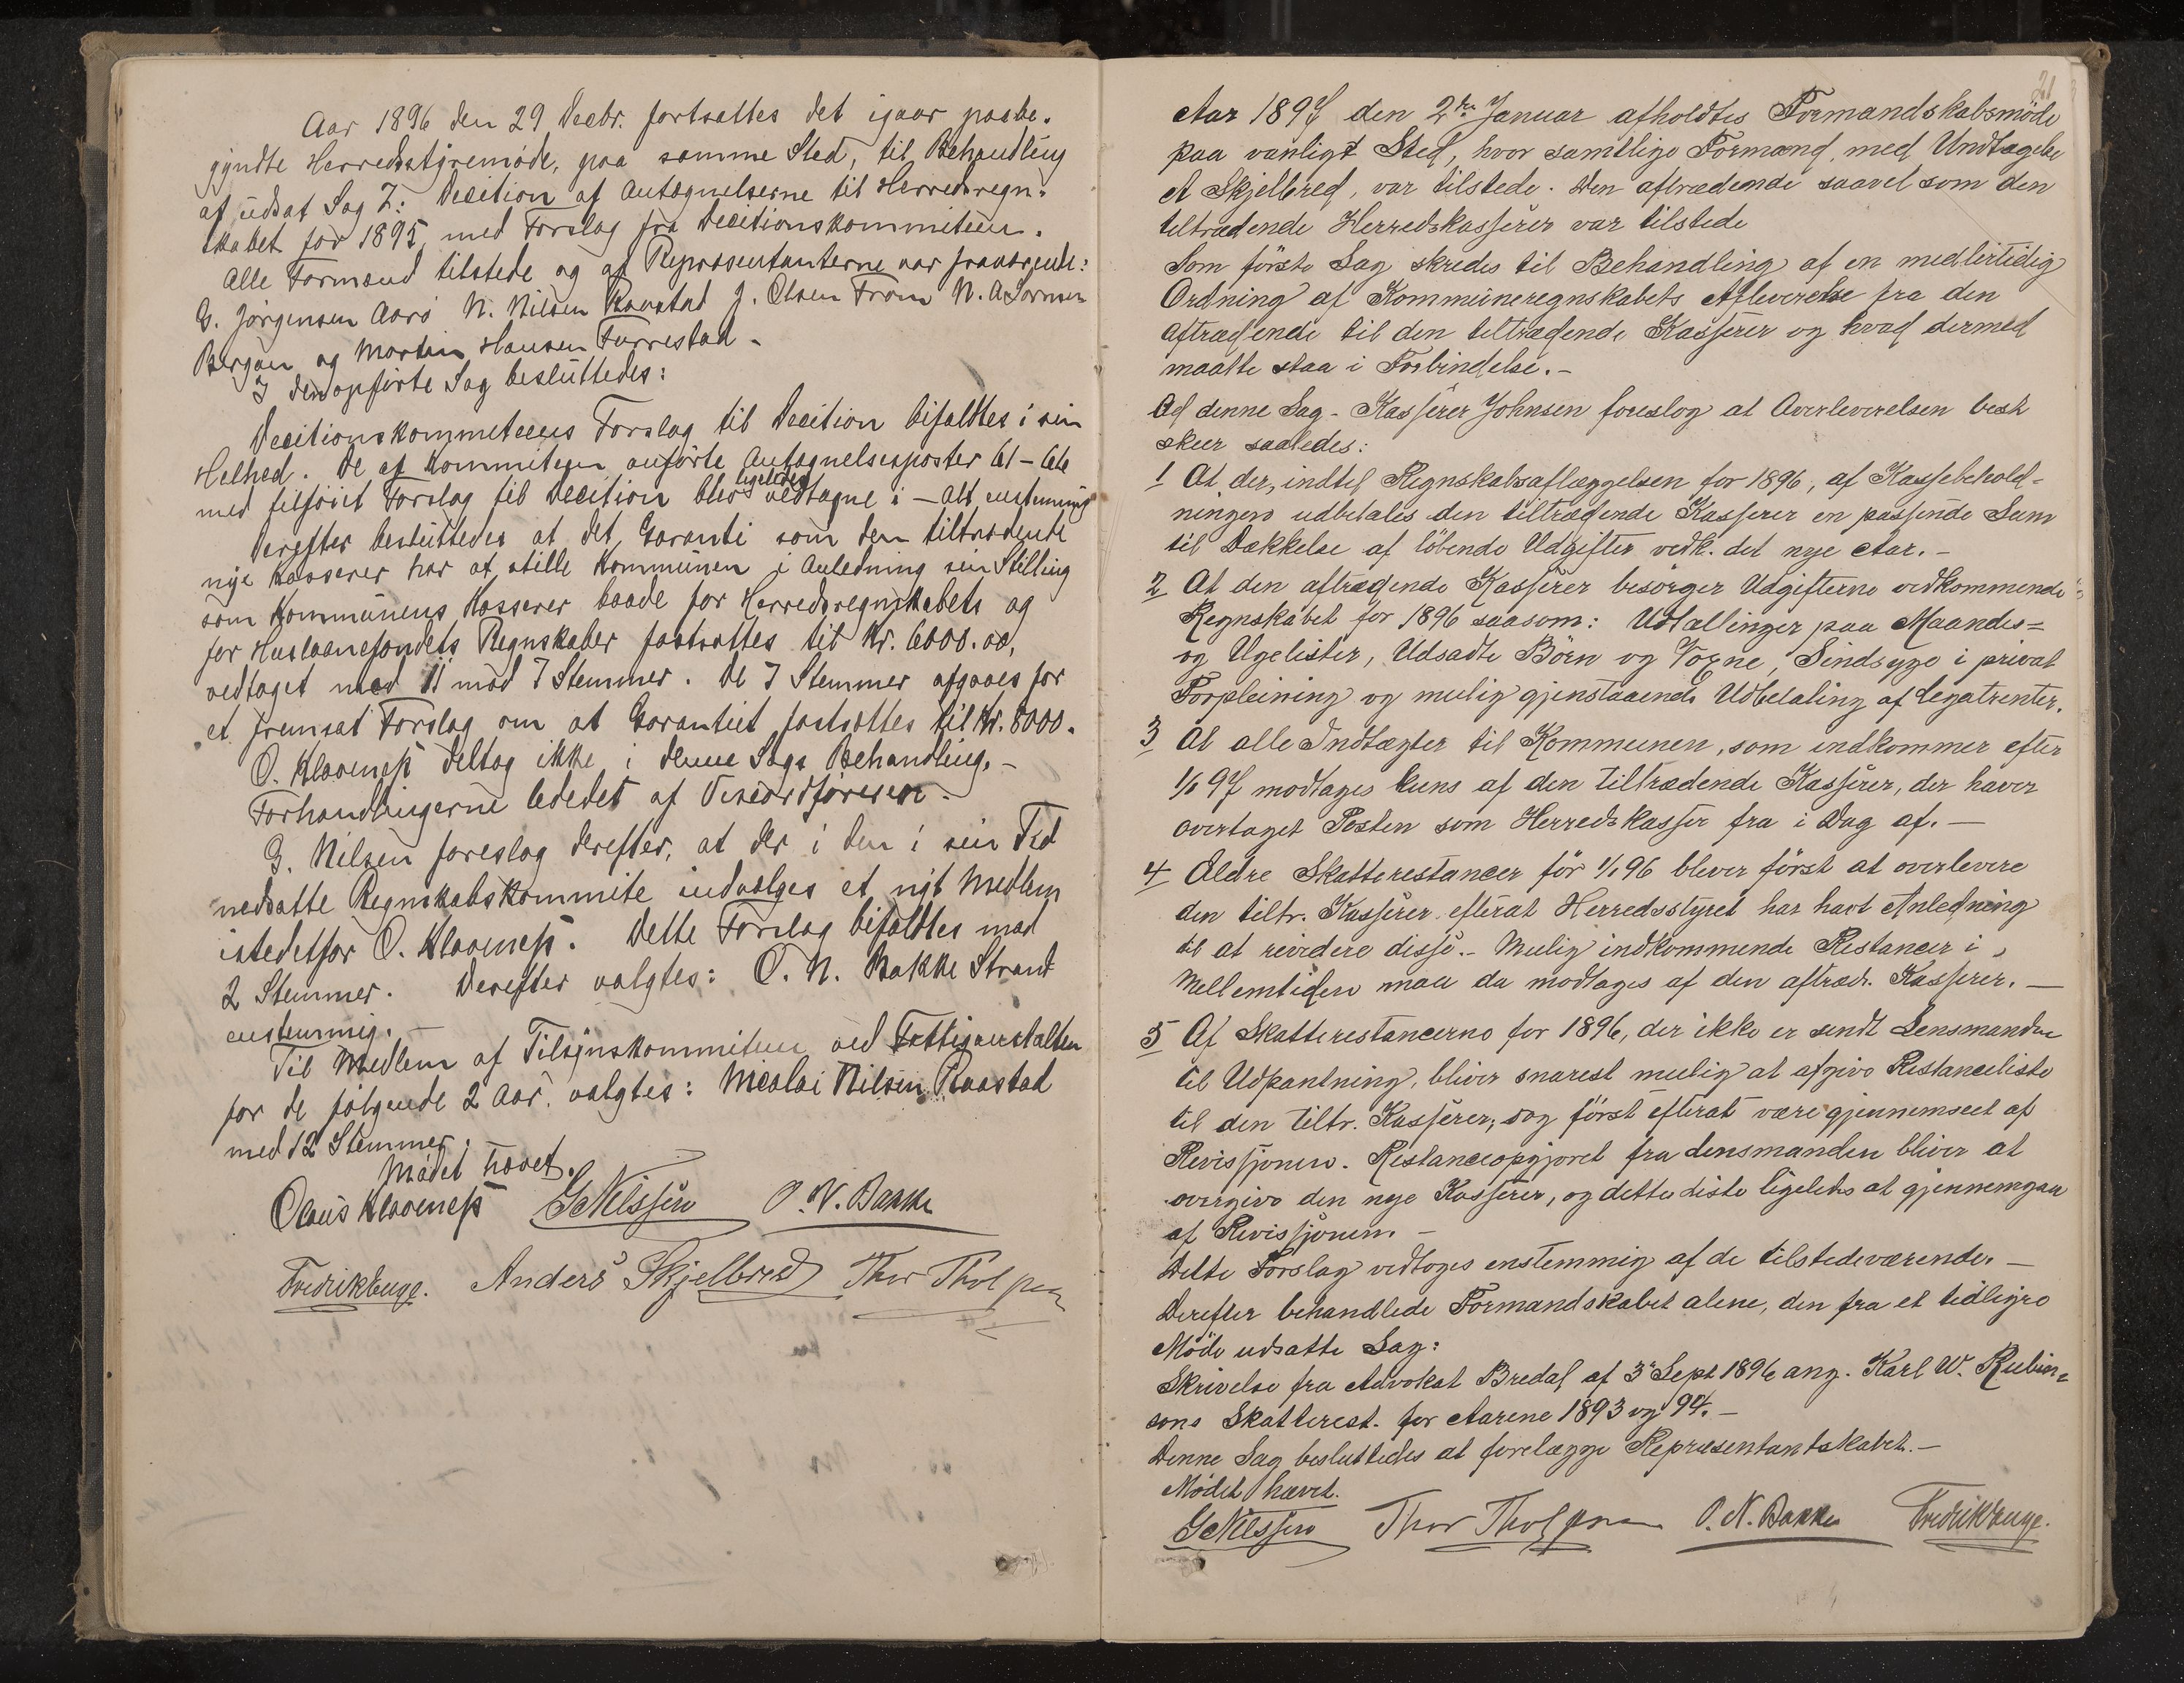 Aar 1896 den 29 Decbr. fortsattes det igaar paabe-
gyndte Herredsstyremøde, paa samme Sted, til Behandling
af udsat Sag 7: Decition af Antegnelserne til Herredsregn-
skabet for 1895 med Forslag fra Decitionskommiteen.
Alle Formænd tilstede og af Repræsentanterne var fraværende:
G. Jørgensen Aarø N. Nilsen Raastad J. Olsen From N. A Sørensen
Bergan og Martin Hansen Furrestad -
I den opførte Sag besluttedes:
Decitionskommiteens Forslag til Decition bifaldtes i sin
Helhed. De af Kommiteen anførte Antegnelsesposter 61-66
med tilføiet Forslag til Decition blev ligeledes vedtagne i - Alt enstemmig
Derefter besluttedes at det Garanti som den tiltrædende
nye Kasserer har at stille Kommunen i Anledning sin Stilling
som Kommunens Kasserer baade for Herredsregnskabets og
for Huslaanefondets Regnskaber fastsattes til Kr. 6000.00,
vedtaget med 11 mod 7 Stemmer. De 7 Stemmer afgaves for
et fremsat Forslag om at Garantiet fastsattes til Kr. 8000.
O. Klavenesş deltog ikke i denne Sags Behandling. -
Forhandlingerne lededet af Viseordføreren -
G. Nilsen foreslog derefter, at der i den i sin Tid
nedsatte Regnskabskommite indvælges et nyt Medlem
istedetfor O. Klaveness. Dette Forslag bifaldtes mod
2 Stemmer. Derefter valgtes: O. N. Bakke Strand
enstemmig. -
Til Medlem af Tilsynskommiteen ved Fattiganstalten
for de følgende 2 Aar valgtes: Nicolai Nilsen Raastad
med 12 Stemmer.
Mødet hævet.
Claus Klaveness G Nilssen O. N. Bakke
Fredrik Bugge. Anders Skjelbred Thor Tholfsen
21
Aar 1897 den 2den Januar afholdtes Formandskabsmöde
paa vanligt Sted, hvor samtlige Formænd, med Undtagelse
A Skjelbred, var tilstede. Den aftrædende saavel som den
tiltrædende Herredskasserer var tilstede
Som förste Sag skredes til Behandling af en midlertidig
Ordning af Kommuneregnskabets Afleverelse fra den
aftrædende til den tiltrædende Kasserer og hvad dermed
maatte staa i Forbindelse. -
Ad denne Sag - Kasserer Johnsen foreslog at Overleverelsen best
skeer saaledes:
1 At der, indtil Regnskabsaflæggelsen for 1896, af Kassebehold-
ningen udbetales den tiltrædende Kasserer en passende Sum
til Dækkelse af löbende Udgifter vedk. det nye Aar. -
2 At den aftrædende Kasserer besörger Udgifterne vedkommende
Regnskabet for 1896 saasom: Udtællinger paa Maaneds=
og Ugelister, Udsadte Börn og Voxne, Sindssyge i privat
Forpleining og mulig gjenstaaende Udbetaling af Legatrenter.
3 At alle Indtægter til Kommunen, som indkommer efter
1/1 97 modtages kuns af den tiltrædende Kasserer, der haver
overtaget Posten som Herredskasser fra i Dag af. -
4 Ældre Skatterestancer för 1/1 96 bliver först at overlevere
den tiltr. Kasserer efterat Herredsstyret har havt Anledning
til at revidere disse. - Mulig indkommende Restancer i
Mellemtiden maa da modtages af den aftræd. Kasserer. -
5 Af Skatterestancerne for 1896, der ikke er sendt Lensmanden
til Udpantning, bliver snarest mulig at afgive Restanceliste
til den tiltr. Kasserer, dog först efterat være gjennemseet af
Revissjonen. Restanceopgjöret fra Lensmanden bliver at
overgive den nye Kasserer, og dette Liste ligeledes at gjennemgaa
af Revissjonen. -
Dette Forslag vedtoges enstemmig af de tilstedeværende. -
Derefter behandlede Formandskabet alene, den fra et tidligre
Möde udsatte Sag:
Skrivelse fra Advokat Bredal af 3 Sept 1896 ang. Karl W. Rubin=
sons Skatterest. for Aarene 1893 og 94. -
Denne Sag besluttedes at forelægge Repræsentantskabet. -
Mödet hævet.
G Nilssen Thor Tholfsen O. N. Bakke Fredrik Bugge.